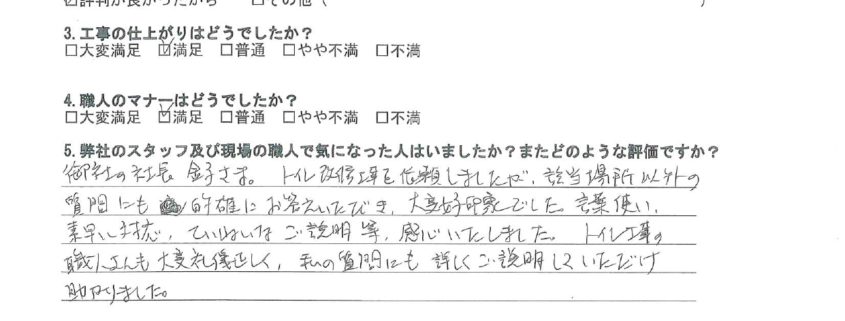 ☑評判が良かったから　□その他（　　　）
3.工事の仕上がりはどうでしたか？
□大変満足　☑満足　□普通　□やや不満　□不満
4.職人のマナーはどうでしたか？
□大変満足　☑満足　□普通　□やや不満　□不満
5.弊社のスタッフ及び現場の職人で気になった人はいましたか？またどのような評価ですか？
御社の社長　金子さま。　トイレ改修工事を依頼しましたが、該当場所以外の
質問にも　的確にお答えいただき、大変好印象でした。言葉使い、
素早い対応、ていねいなご説明等、感心いたしました。　トイレ工事の
職人さんも大変礼儀正しく、私の質問にも詳しくご説明していただけ
助かりました。